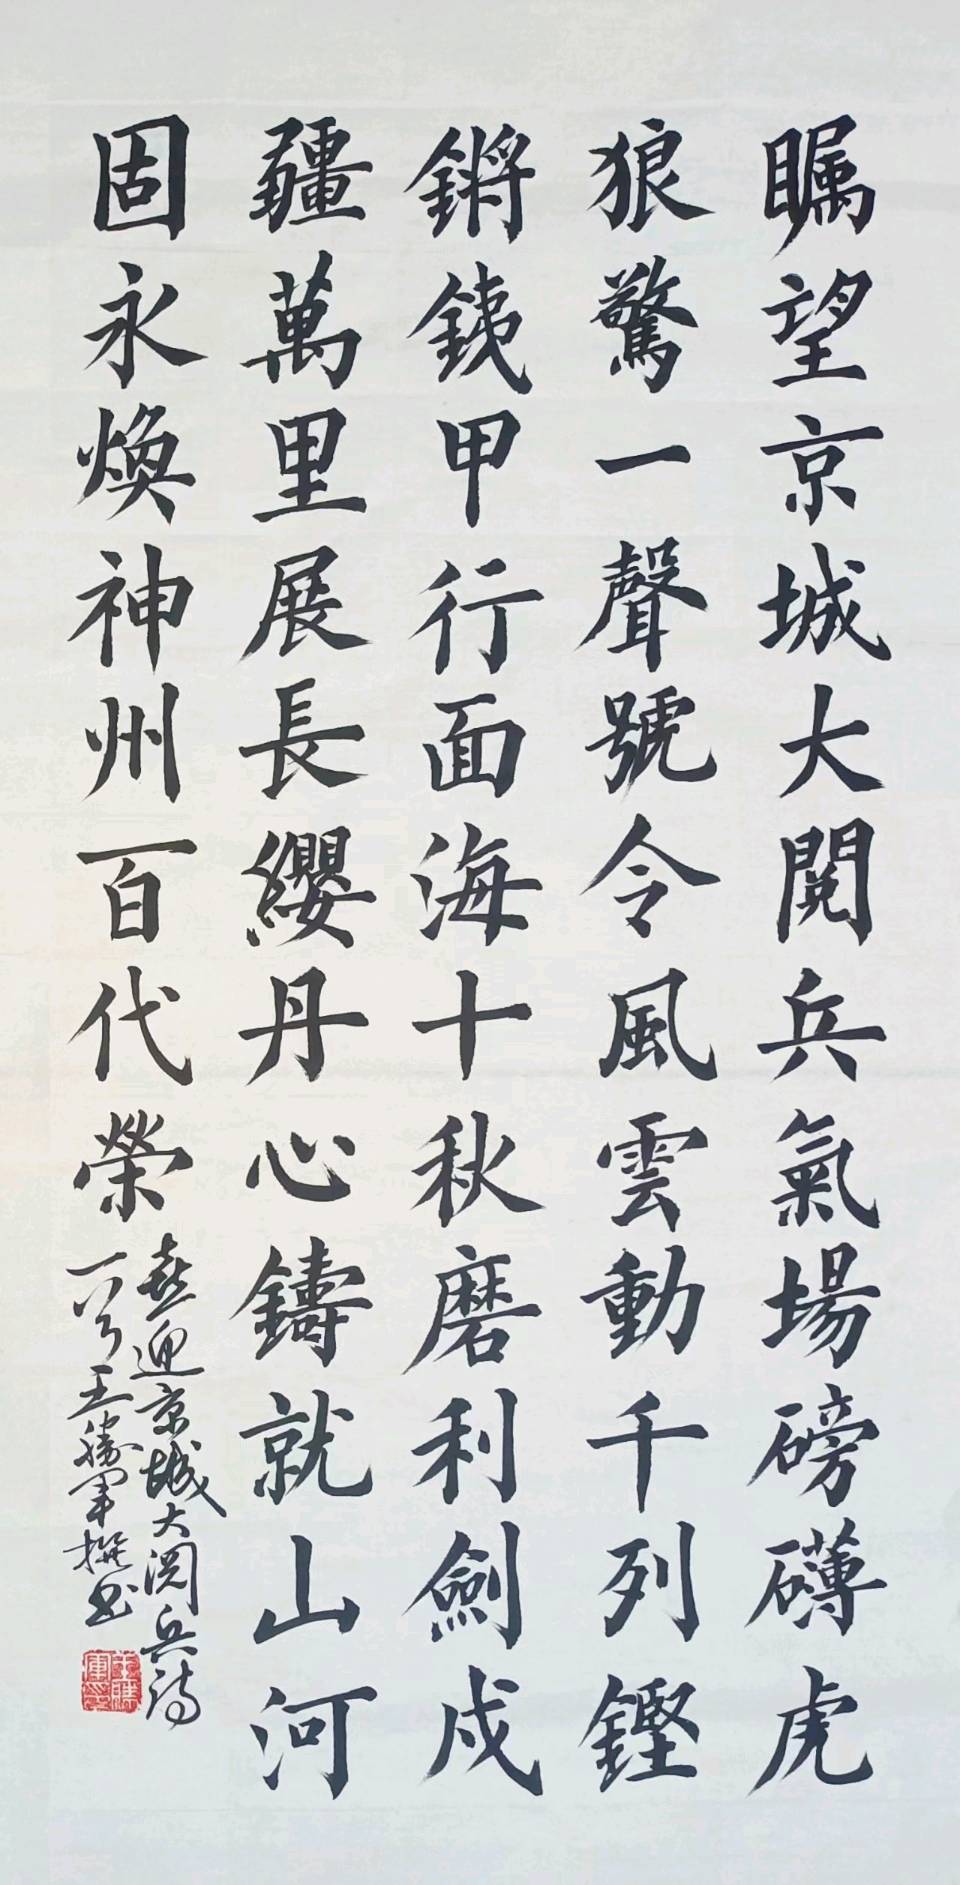 瞩望京城大閱兵氣場磅礴虎
狼驚一聲號令風雲動千列鏗
鏘銕甲行面海十秋磨利劍戍
疆萬里展長纓丹心鑄就山河
固永煥神州百代榮
喜迎京城大閱兵詩
一兮王勝軍撰书
王勝軍印